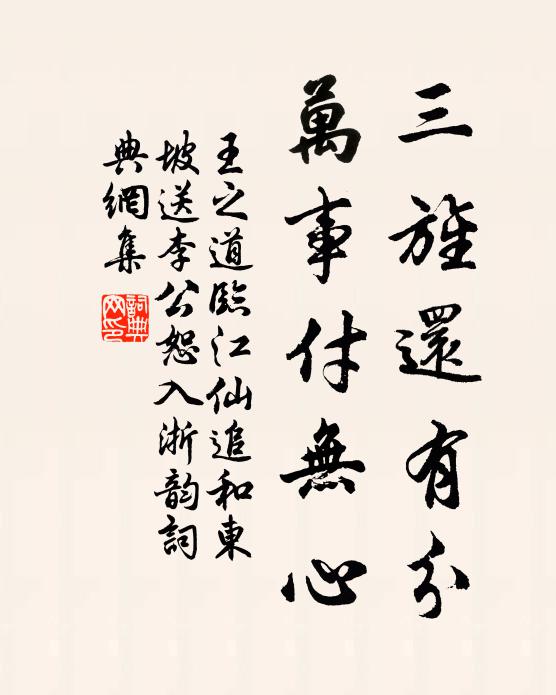 三旌還有分
萬事付無心
王之道臨江仙追和東
坡送李公恕入浙韵詞
典網集
詞典
网印